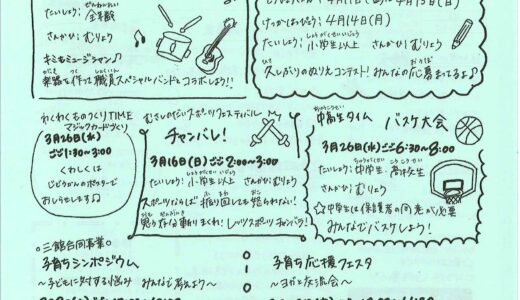 たいしょう：全年齢
さんかひ：むりょう
キミもミュージシャン♪
楽器を作って職員スペシャルバンドとコラボしよう!!
けっかはっぴょう：4月14日(月)
たいしょう：小学生以上 さんかひ：むりょう
久しぶりのぬりえコンテスト！みんなの応募まってるよ♪
わくわくものづくりTIME
マジックカードづくり
3月26日(水)
ごご1:30〜3:00
くわしくは
じどうかんのポスターで
おしらせします♫
むさしのだいスポーツフェスティバル
チャンバレ！
3月16日(日)ごご2:00〜3:00
たいしょう：小学生以上 さんかひ：むりょう
スポーツならば振り回しても怒られない！
レッツスポーツチャンバラ！
中高生タイム バスケ大会
3月26日(水)ごご6:30〜8:00
たいしょう：中学生・高校生
さんかひ：むりょう
☆中学生は保護者の同意が必要
みんなでバスケしよう！
○三館合同事業○
子育ちシンポジウム
〜子どもに対する悩み みんなで考えよう〜
子育ち応援フェスタ